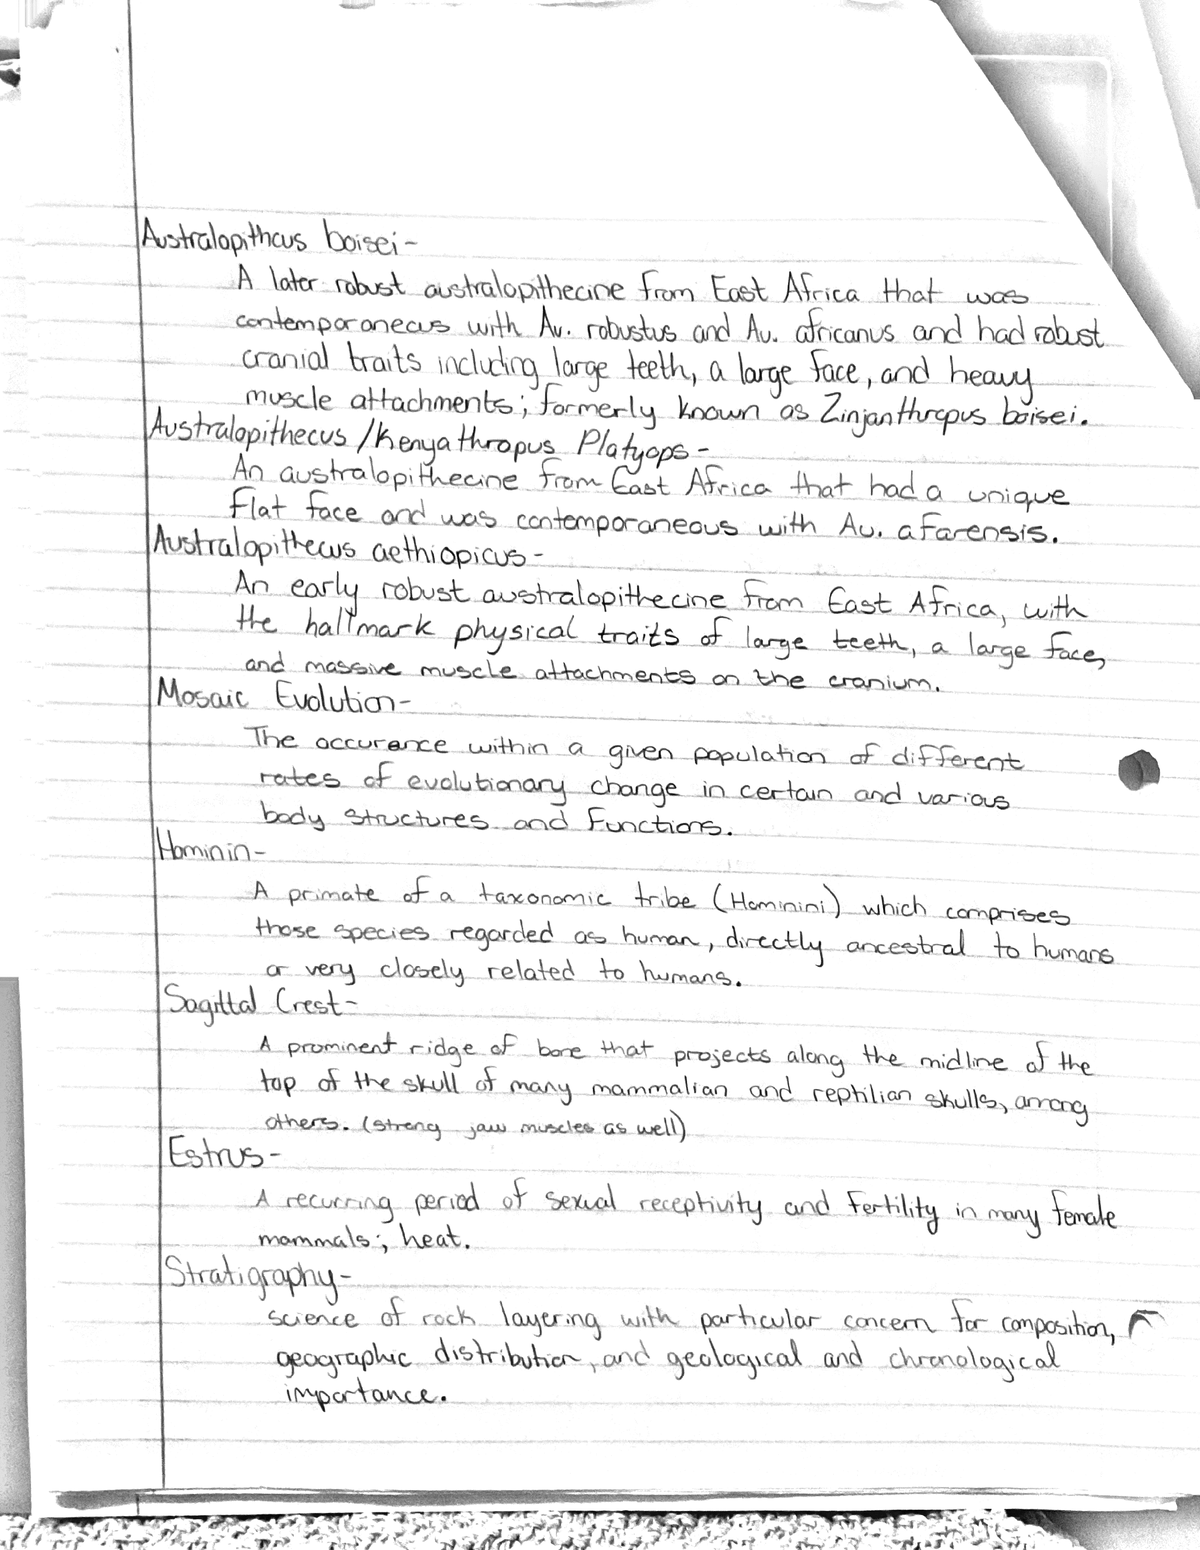 Australopithcus boisei-
A later robust australopithecine from East Africa that was
contemporaneous with Au. robustus and Au. africanus and had robust
cranial traits including large teeth, a large face, and heavy
muscle attachments; formerly known as Zinjanthropus boisei.
Australopithecus /Kenyathropus Platyops-
An australopithecine from East Africa that had a unique
flat face and was contemporaneous with Au. afarensis.
Australopithecus aethiopicus-
An early robust australopithecine from East Africa, with
the hallmark physical traits of large teeth, a large face,
and massive muscle attachments on the cranium.
Mosaic Evolution-
The occurance within a given population of different
rates of evolutionary change in certain and various
body structures and functions.
Hominin-
A primate of a taxonomic tribe (Hominini) which comprises
those species regarded as human, directly ancestral to humans
or very closely related to humans.
Sagittal Crest-
A prominent ridge of bone that projects along the midline of the
top of the skull of many mammalian and reptilian skulls, among
others. (strong jaw muscles as well)
Estrus-
A recurring period of sexual receptivity and fertility in many female
mammals; heat.
Stratigraphy-
science of rock layering with particular concern for composition,
geographic distribution, and geological and chronological
importance.